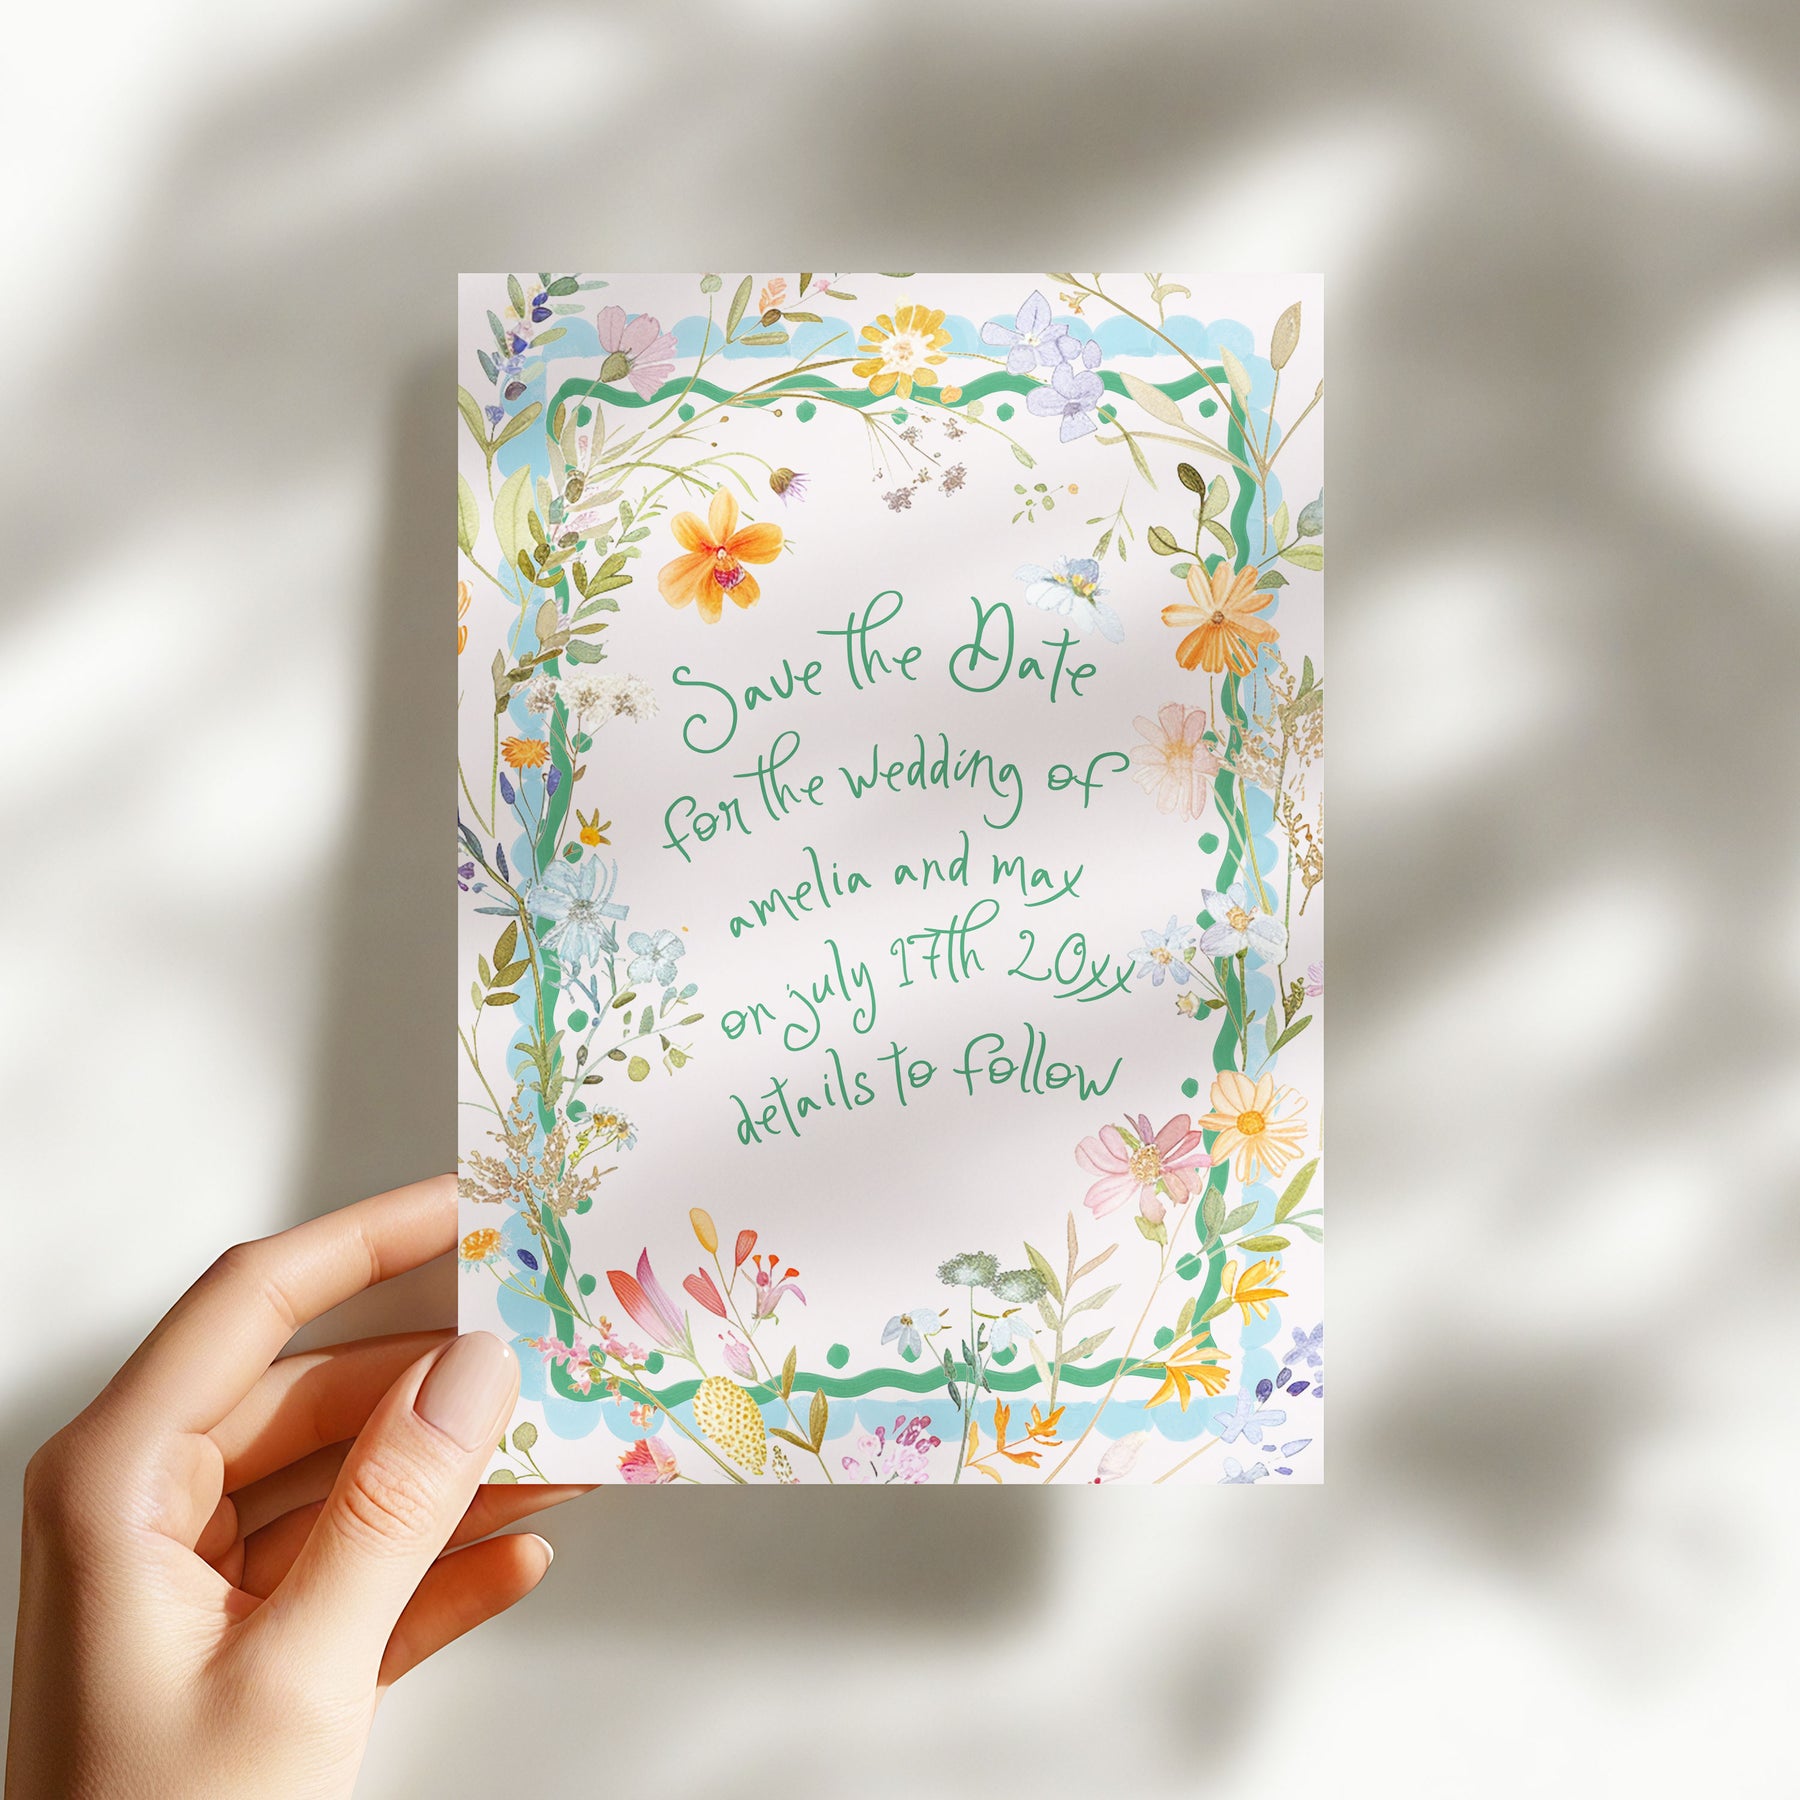 Save the Date
for the wedding of
amelia and max
on july 17th 20xx
details to follow